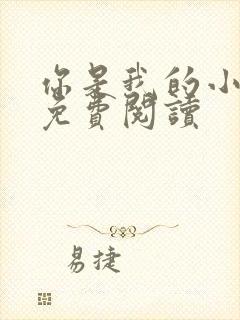 你是我的小
免費閱讀
易捷